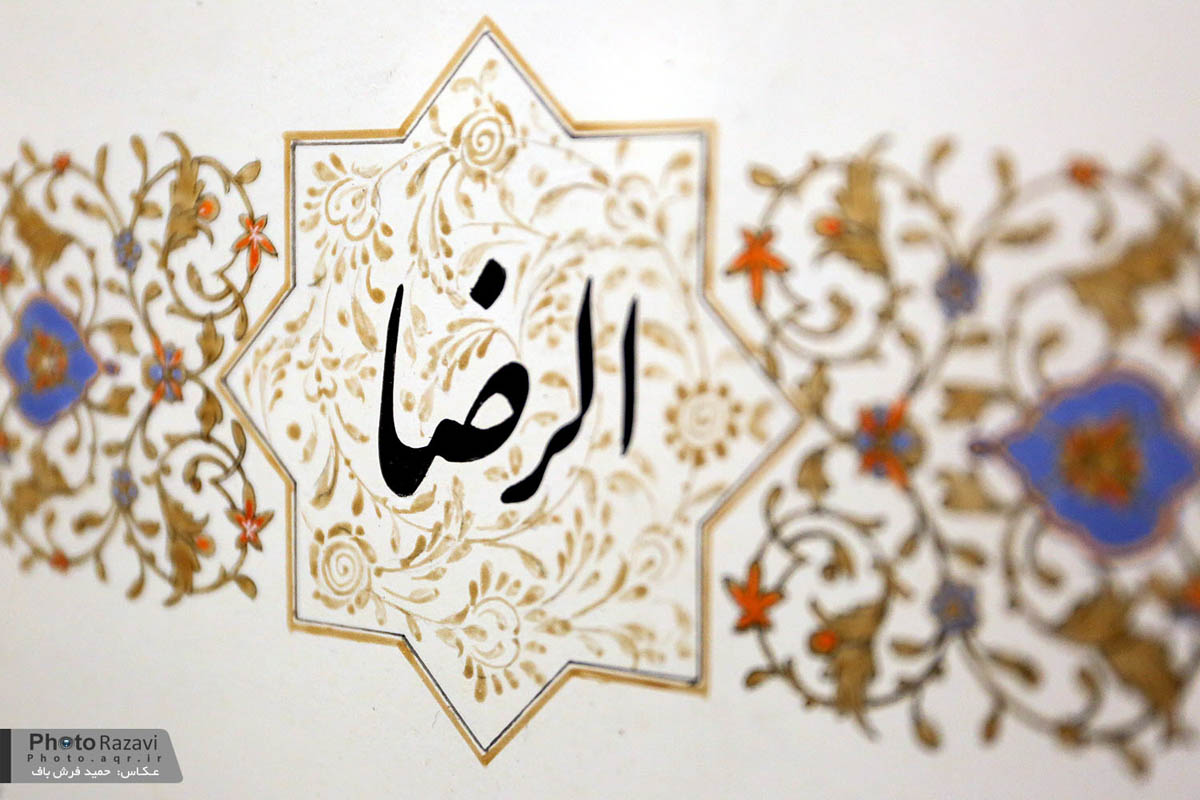 الرضا
Photo Razavi
Photo.aqr.ir
عکاس: حمید فرش باف